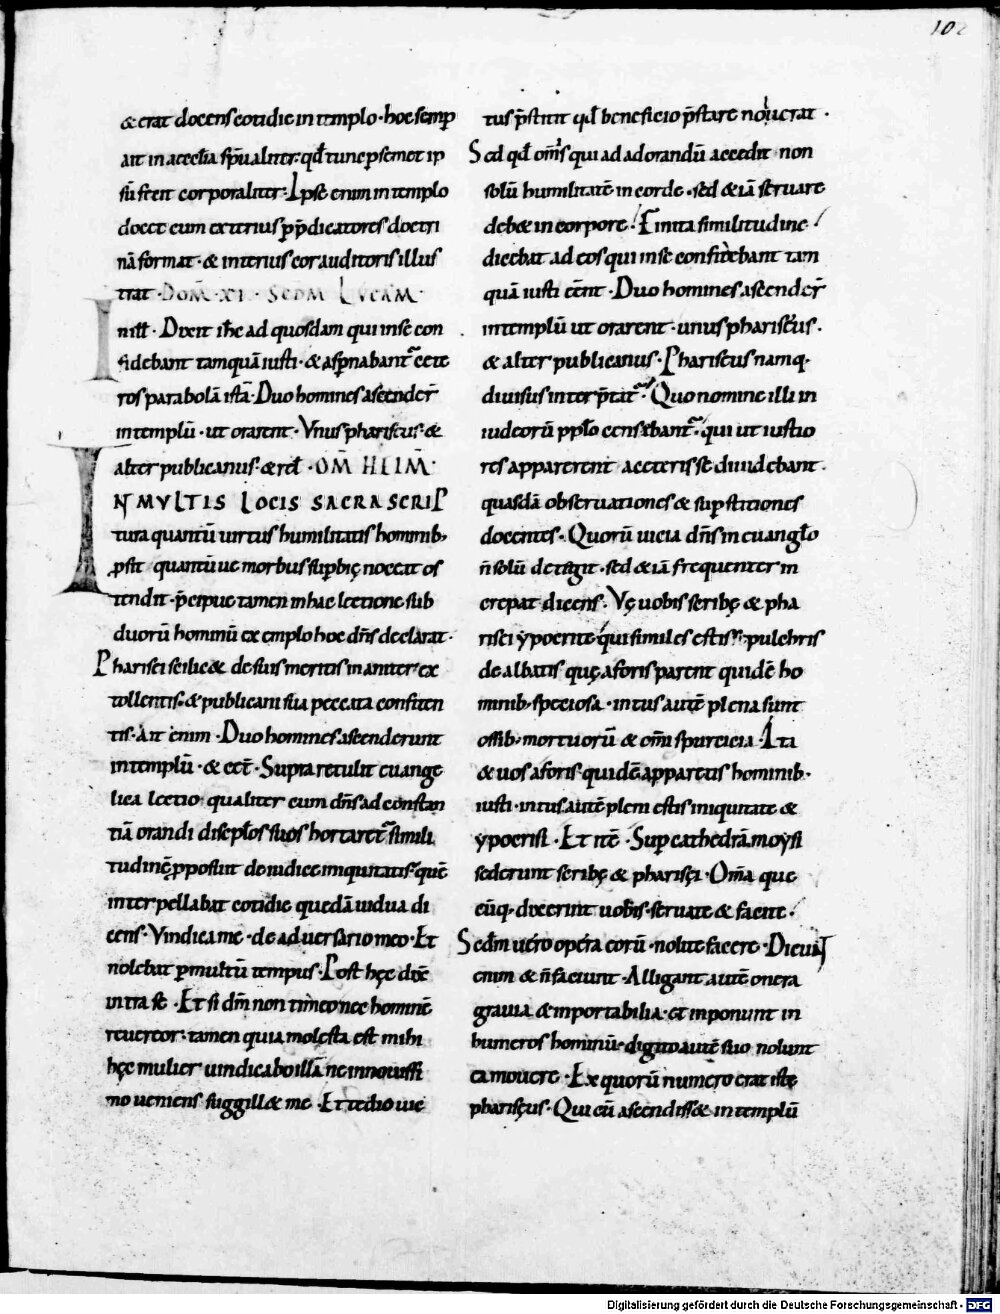 102
& erat docens cotidie in templo · hoc semp
ait in aeccl̄ia sp̄ualiter · qđ tunc p̱semet ip
sū fecit corporaliter · Ipse enim in templo
docet cum exterius p̱ p̄dicatores doctri
nā format · & interius cor auditoris illus
trat · DOM̄ · XI · SCDM LUCAM ·
In ill̄ · Dixit ih̄c ad quosdam qui in se con
fidebant tamquā iusti · & asp̱nabant᷒ cete
ros parabolā istā · Duo homines ascender̄
in templū · ut orarent · Vnus phariseus · &
alter publicanus · & rel̄ · OM̄ HEIM̄ ·
IN MVLTIS LOCIS SACRA SCRIP
tura quantū uirtus humilitatis hominib;
p̱sit quantūue morbus sup̱bię noceat os
tendit · p̄cipue tamen in hac lectione sub
duorū hominū exemplo hoc dn̄s declarat ·
Pharisei scilic& de suis meritis inaniter ex
tollentis · & publicani sua peccata confiten
tis · Ait enim · Duo homines ascenderunt
in templū · & cet̄ · Supra retulit euange
lica lectio qualiter cum dn̄s ad constan
tiā orandi discip̄los suos hortaret᷒ simili
tudinē p̱posuit de iudice iniquitatis · quē
interpellabat cotidie quedā uidua di
cens · Vindica me · de aduersario meo · Et
nolebat p̱ multū tempus · Post hęc dix̄
intra se · Et si dm̄ non timeo nec hominē
reuereor · tamen quia molesta est mihi
hęc mulier uindicabo illā ne in nouissi
mo ueniens suggill& me · Et ideo uie
tus p̄stitit qđ beneficio p̄stare nouerat ·
Sed qđ om̄s qui ad adorandū accedit non
solū humilitatē in corde · sed & iā seruare
deb& in corpore · Finita similitudine
dicebat ad eos qui in se confidebant tam
quā iusti cēnt · Duo homines ascender̄
in templū ut orarent · unus phariseus ·
& alter publicanus · Phariseus namq;
diuisus interp̄tat᷒ · Quo nomine illi in
iudeorū pp̄lo censebant᷒ · qui ut iustio
res apparerent a ceteris se diuidebant ·
quasdā obseruationes & sup̱stitiones
docentes · Quorū uicia dn̄s in euangl̄o
n̄ solū detegit · sed & iā frequenter in
crepat dicens · Vę uobis scribę & pha
risei ypocrite qui similes estis · pulchris
dealbatis quę a foris parent quidē ho
minib; speciosa · intus autē plena sunt
ossib; mortuorū & om̄i spurcicia · Ita
& uos a foris quidē apparetis hominib;
iusti · intus autē pleni estis iniquitate &
ypocrisi · Et itē · Sup̱ cathedrā moysi
sederunt scribę & pharisęi · Om̄a que
cūq; dixerint uobis · seruate & facite ·
Scdm̄ uero opera eorū · nolite facere · Dicunt
enim & n̄ faciunt · Alligant autē onera
grauia & inportabilia · et inponunt in
humeros hominū · digito autē suo nolunt
ea mouere · Ex quorū numero erat iste
pharisęus · Qui cū ascendiss& in templū
Digitalisierung gefördert durch die Deutsche Forschungsgemeinschaft · DFG